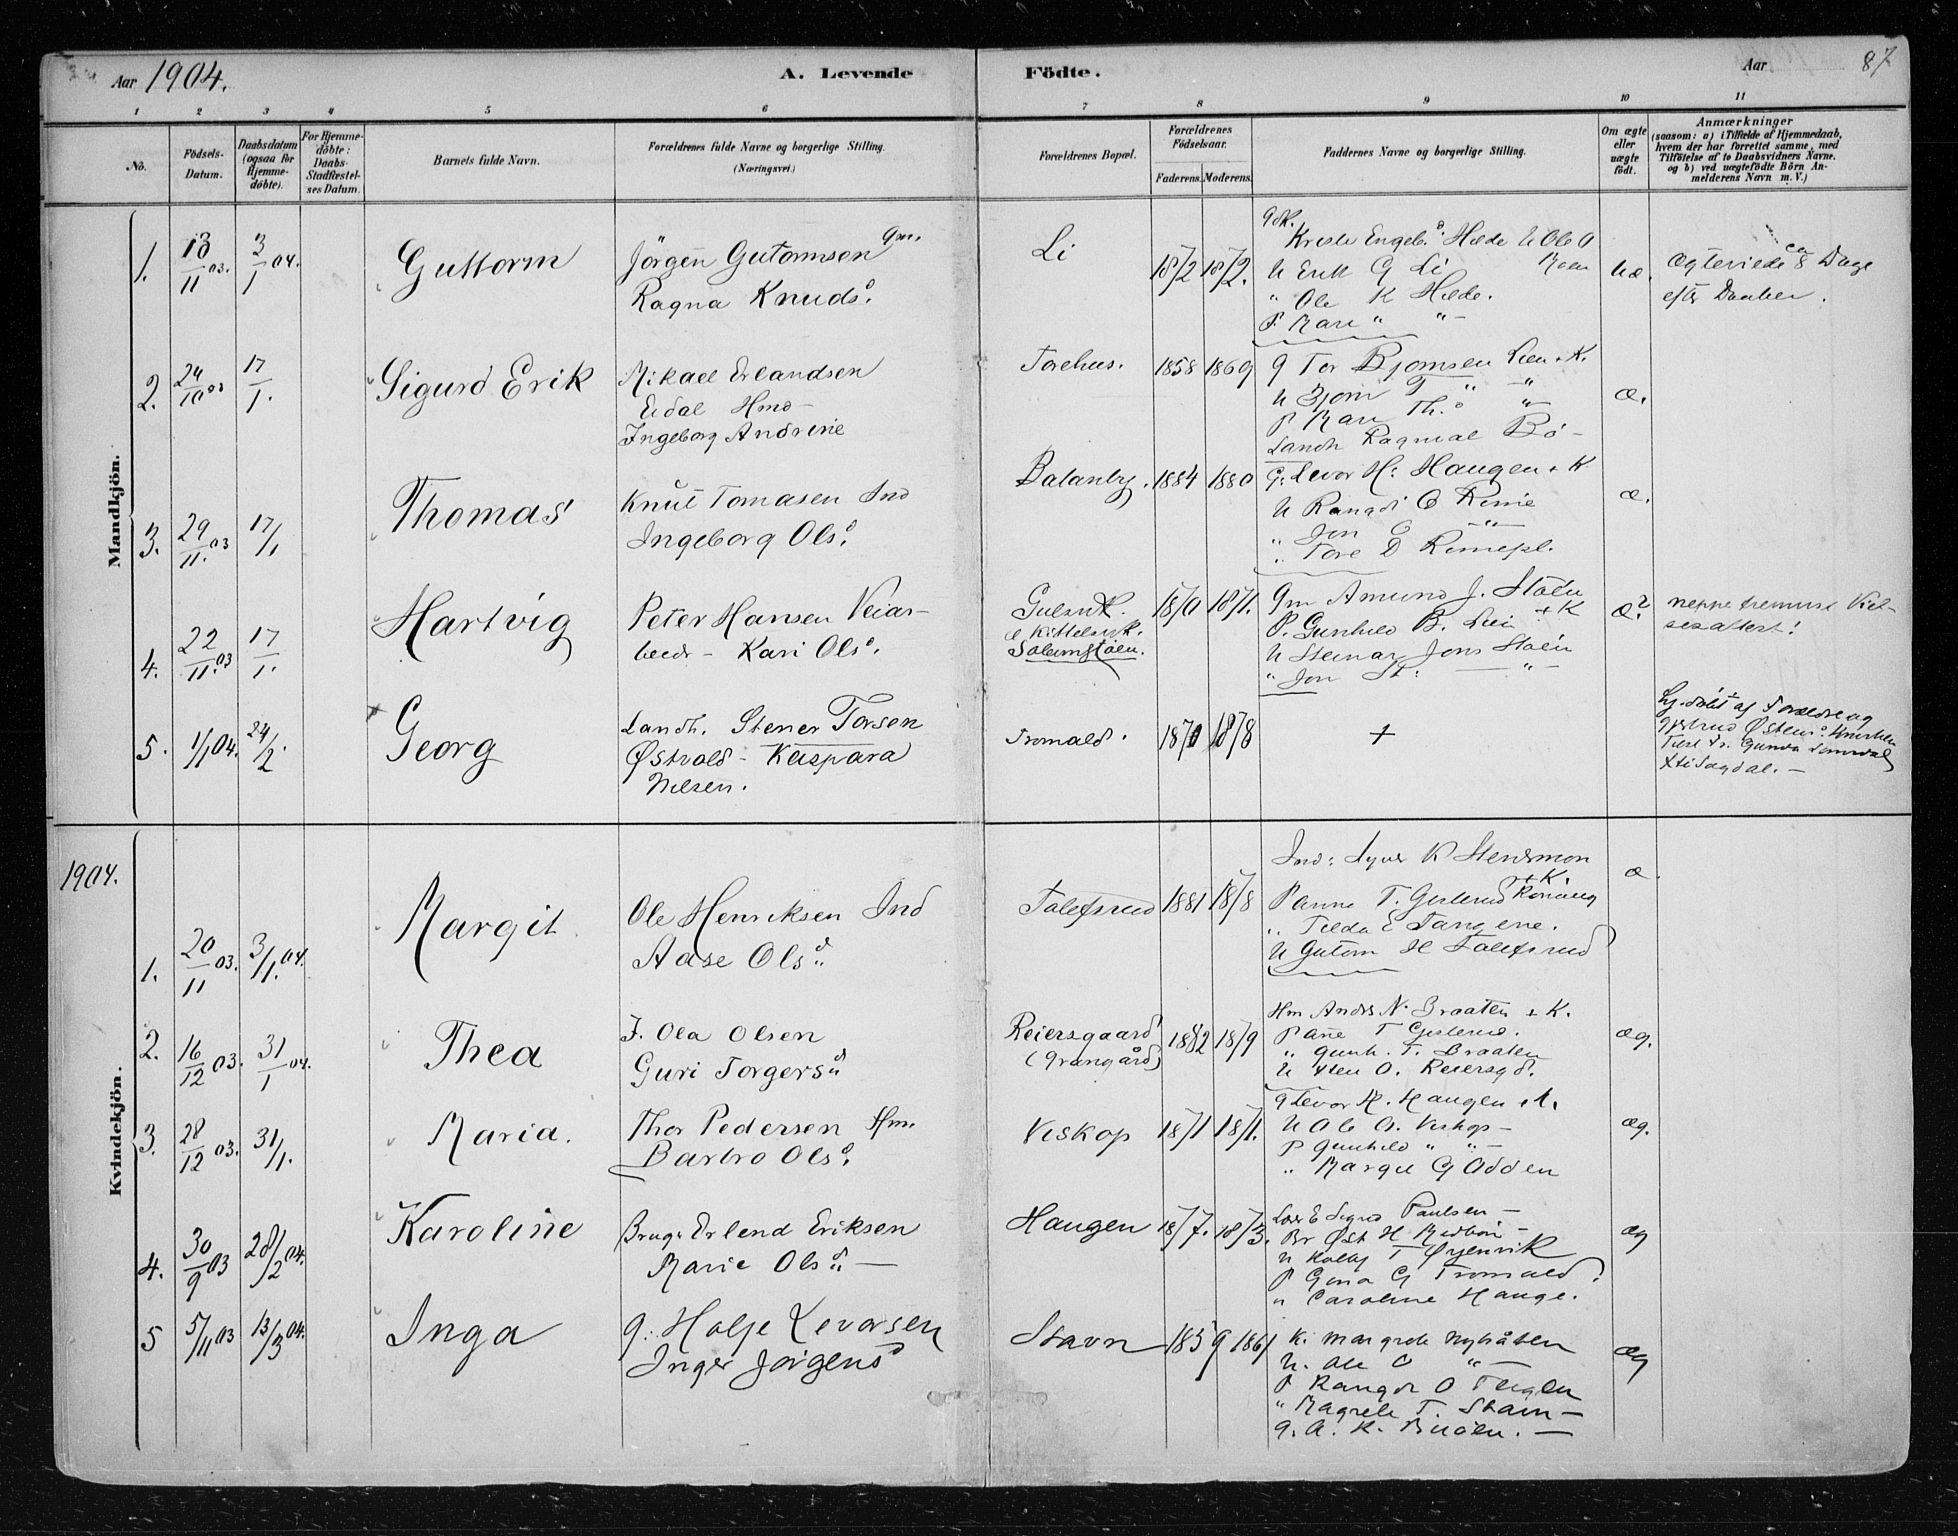 Aar 1904. A. Levende Födte. Aar 87
1 2 3 4 5 6 7 8 9 10 11
No. Födsels-Datum. Daabsdatum (ogsaa for Hjemme-döbte). For Hjemme-döbte: Daabs-Stadfæstel-ses Datum. Barnets fulde Navn. Forældrenes fulde Navne og borgerlige Stilling. (Næringsvei.) Forældrenes Bopæl. Forældrenes Födselsaar. Faderens. Moderens. Faddernes Navne og borgerlige Stilling. Om ægte eller uægte födt. Anmærkninger (saasom: a) i Tilfælde af Hjemmedaab, hvem der har forrettet samme, med Tilföielse af to Daabsvidners Navne. og b) ved uægtefödte Börn An-melderens Navn m. V.)
Mandkjön.
1. 13/11 03. 3/1 04. Guttorm
Jörgen Gutormsen Gm.
Ragna Knudsd.
Li 1872 1872.
Erik G Li
" Ole K Hæde.
P. Mari " "
uæ.
8 Dage
efter Daaben.
2. 24/10 03 17/1. Sigurd Erik
Mikael Erlandsen
Eidal Hmd
Ingeborg Andrine
Torehus. 1858 1869
G Tor Bjornsen Lien + K.
U Bjorn T " "
P Mari Th.d "
Landh Ragnval Bö -
æ.
3. 29/11. 03 17/1 Thomas
Knut Tomasen Ind
Ingeborg Olsd.
1884 1880
G. Levor H. Haugen + K
U Rangdi O Rime
" Jon E "
" Tore D Rimepl.
æ.
4. 22/11. 03 17/1. Hartvig
Peter Hansen Veiar-
beidr - Kari Olsd.
Gulsvik.
Kittelsvik.
Solumstöen.
1870 1871.
Gm Amund J. Stöen
+ K
P. Gunhild B. Lii
U Steinar Jons Stöen
" Jon St. "
æ?
neppe fremvist Viel-
sesattest!
5. 1/1 04. 24/2. Georg
Landh. Stener Torsen
Østvold - Kaspara
Nilsen.
Tromald. 1870 1878
+
Hj. döbt af Forældre og
1904.
Kvindekjön.
1. 20/11 03. 3/1. 04. Margit
Ole Henriksen Ind
Aase Olsd.
Tolefsrud 1881 1878
+ K.
P Anne T. Gislerud
" Tilda E Tangene.
U Gutorm H Tolefsrud
æ.
2. 16/12 03. 31/1 04. Thea
F. Ola Olsen
Guri Torgersd
Reiersgaard
(Grangård)
1882 1879
Hm Anders N. Braaten + K.
P Ane T Gislerud.
" Gunh. T. Braaten
U Sten O. Reiersgd.
æg.
3. 28/12 03. 31/1. Maria.
Thor Pedersen Hm.
Barbro Olsd.
Veskop 1871 1871.
G Levor H. Haugen + K.
U Ole A. Veskop -
P Gunhild " "
" Margit G Odden
æg.
4. 30/9 03 28/2 04. Karoline
Brugr Erlend Eriksen
Marie Olsd. -
Haugen 1877. 1873.
Lær E Sigurd Paulsen -
U Kolbj T Øyenvik
P Gina G Tromald
" Caroline Hauge.
æg
5 5/11 03 13/3 04. Inga
G. Holje Levorsen
Inger Jörgensd
Stavn 1859 1861
K. Margrete Nybråten
U. Ole O "
P Rangdi O Teiglen
" Magrete T. Stavn -
G. A. K. Buöen. -
æg